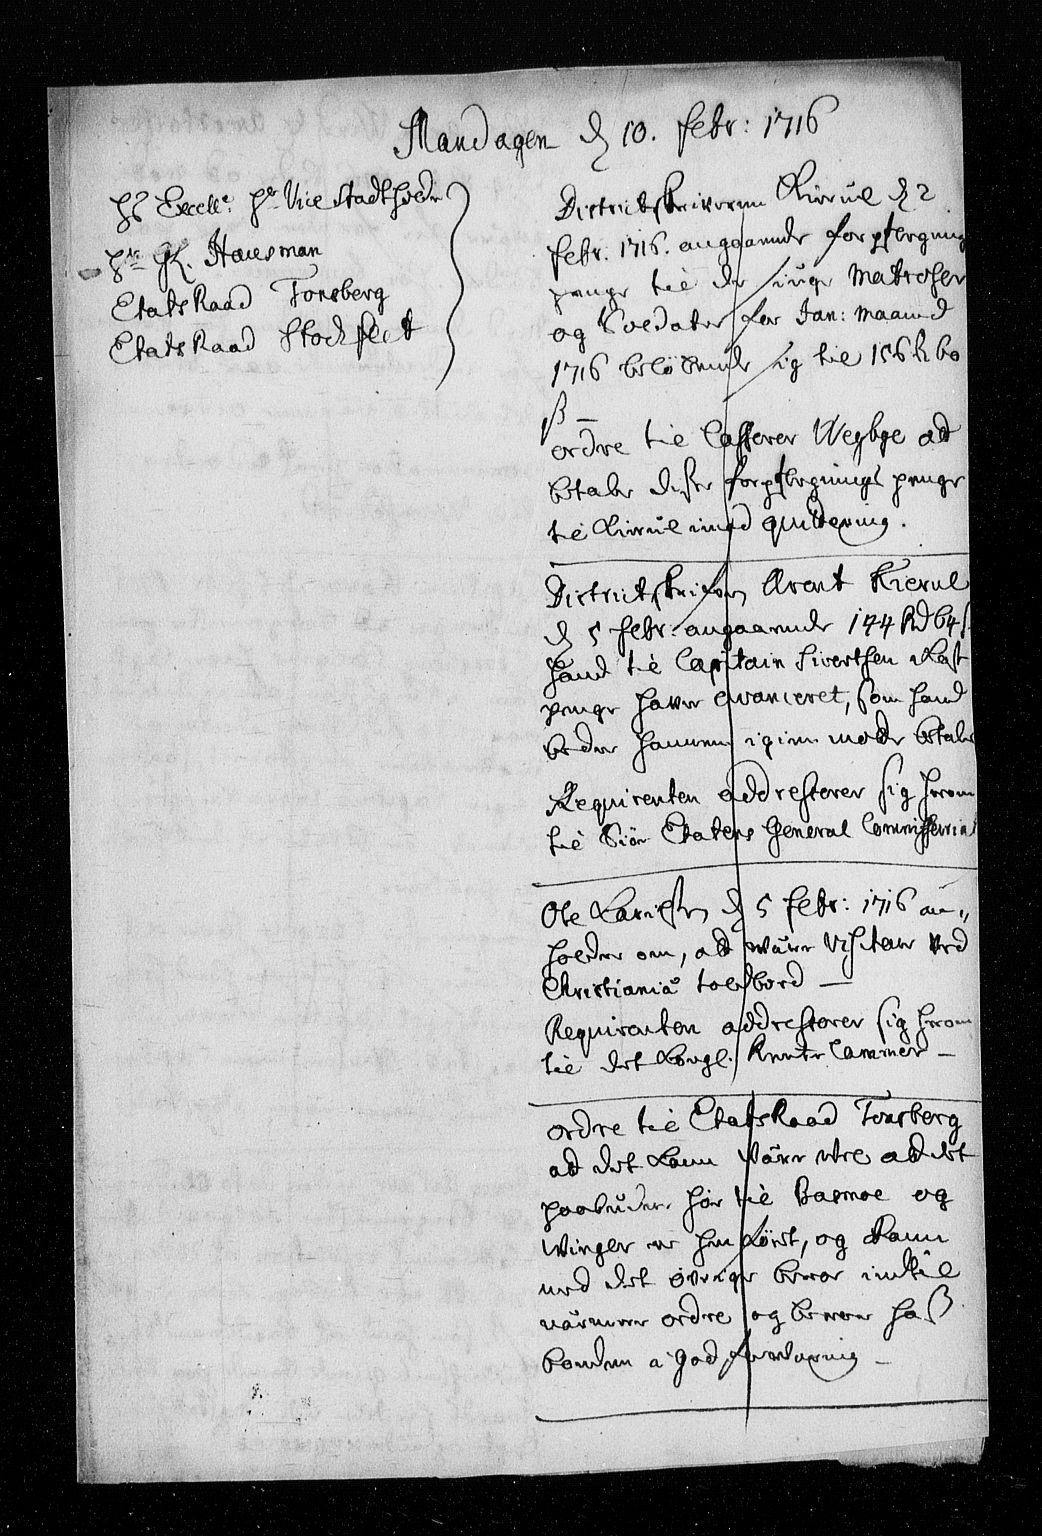 Mandagen d 10. Febr: 1716
Hs Excell: Hr Vice Stadtholder
Hr GK. Hausman
EtatsRaad Tonsberg
EtatsRaad Stockflet
Districtskriveren Kierul d 2
Febr. 1716. angaaende forpflegnings
penge til de siuge Matroser
og Soldater for Jan: Maaned
1716 beløbende sig til 156 R 60
ß
ordre til Casserer Weybye at
betale disse forpflegnings penge
til Kierul imod qvittering.
Districtskriver Arent Kierul
d 5 Febr. angaaende 144 Rd 64 ß
hand til Capitain Sivertsen Kost
penge haver avanceret, som hand
beder hannem igien maatte betales
Requirenten addresserer sig herom
til Siöe Etatens General Commissariat
Ole Larisen d 5 Febr: 1716 an„
holder om, at være Visiteur ved
Christiania toldbord —
Requirenten addresserer sig herom
til det Kongl. Rente Cammer —
ordre til EtatsRaad Tonsberg
at det kand være at det
paabudne høe til Basmoe og
Winger er hen kiørt, og kand
med det øvrige beroe indtil
nærmere ordre og bevare
bonden i god forvaring —